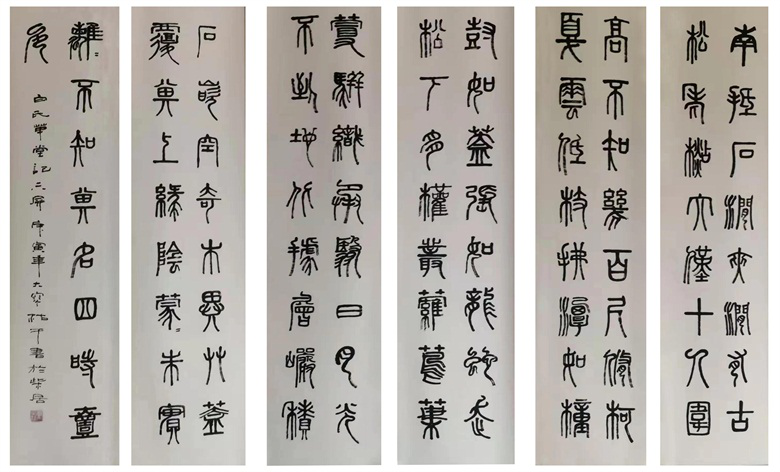 南抵石澗夾澗有古
松老杉大僅十人圍
高不知幾百尺脩柯
戛雲低枝拂潭如幢
豎如蓋張如龍蛇走
松下多灌叢蘿蔦葉
蔓駢織承翳日月光
不到地北據層巖積
石嵌空奇木異艸蓋
覆其上綠陰蒙〻朱實
離〻不知其名四時壹
色
白氏草堂記六屏庚寅年大寒書於柴居